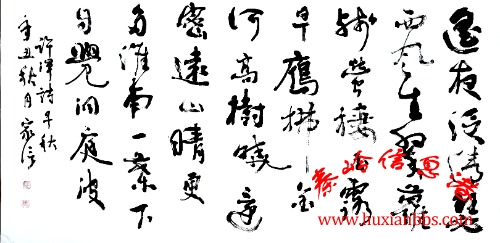 遥夜泛清瑟
西风生翠蘿
残螢棲玉露
早鷹拂金
河高樹曉還
密遠山晴更
多淮南一葉下
自覺洞庭波
許渾詩早秋
辛丑秋月家信
www.huxianbbs.com